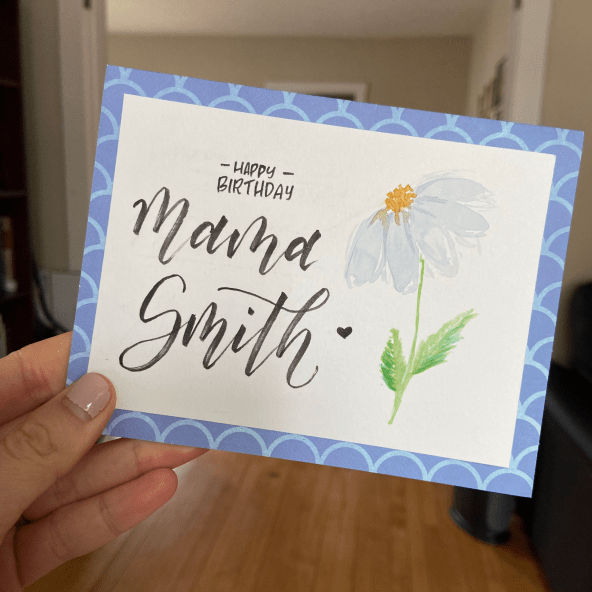 - HAPPY -
BIRTHDAY
Mama
Smith